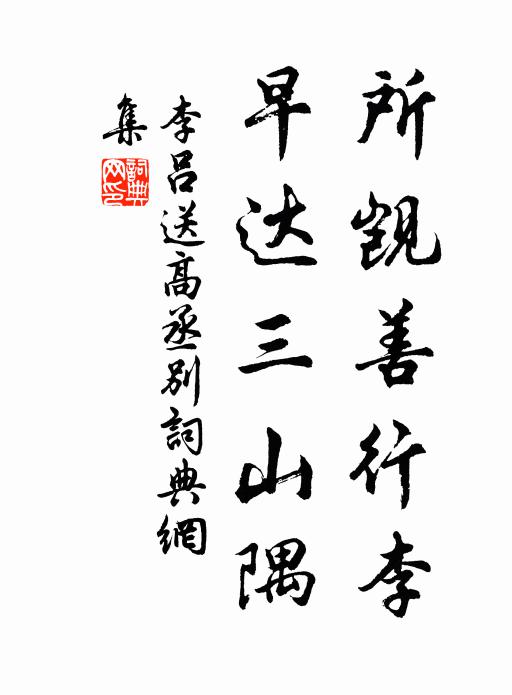 所觊善行李
早达三山隅
李吕送高丞别詞典網
集
詞典网印